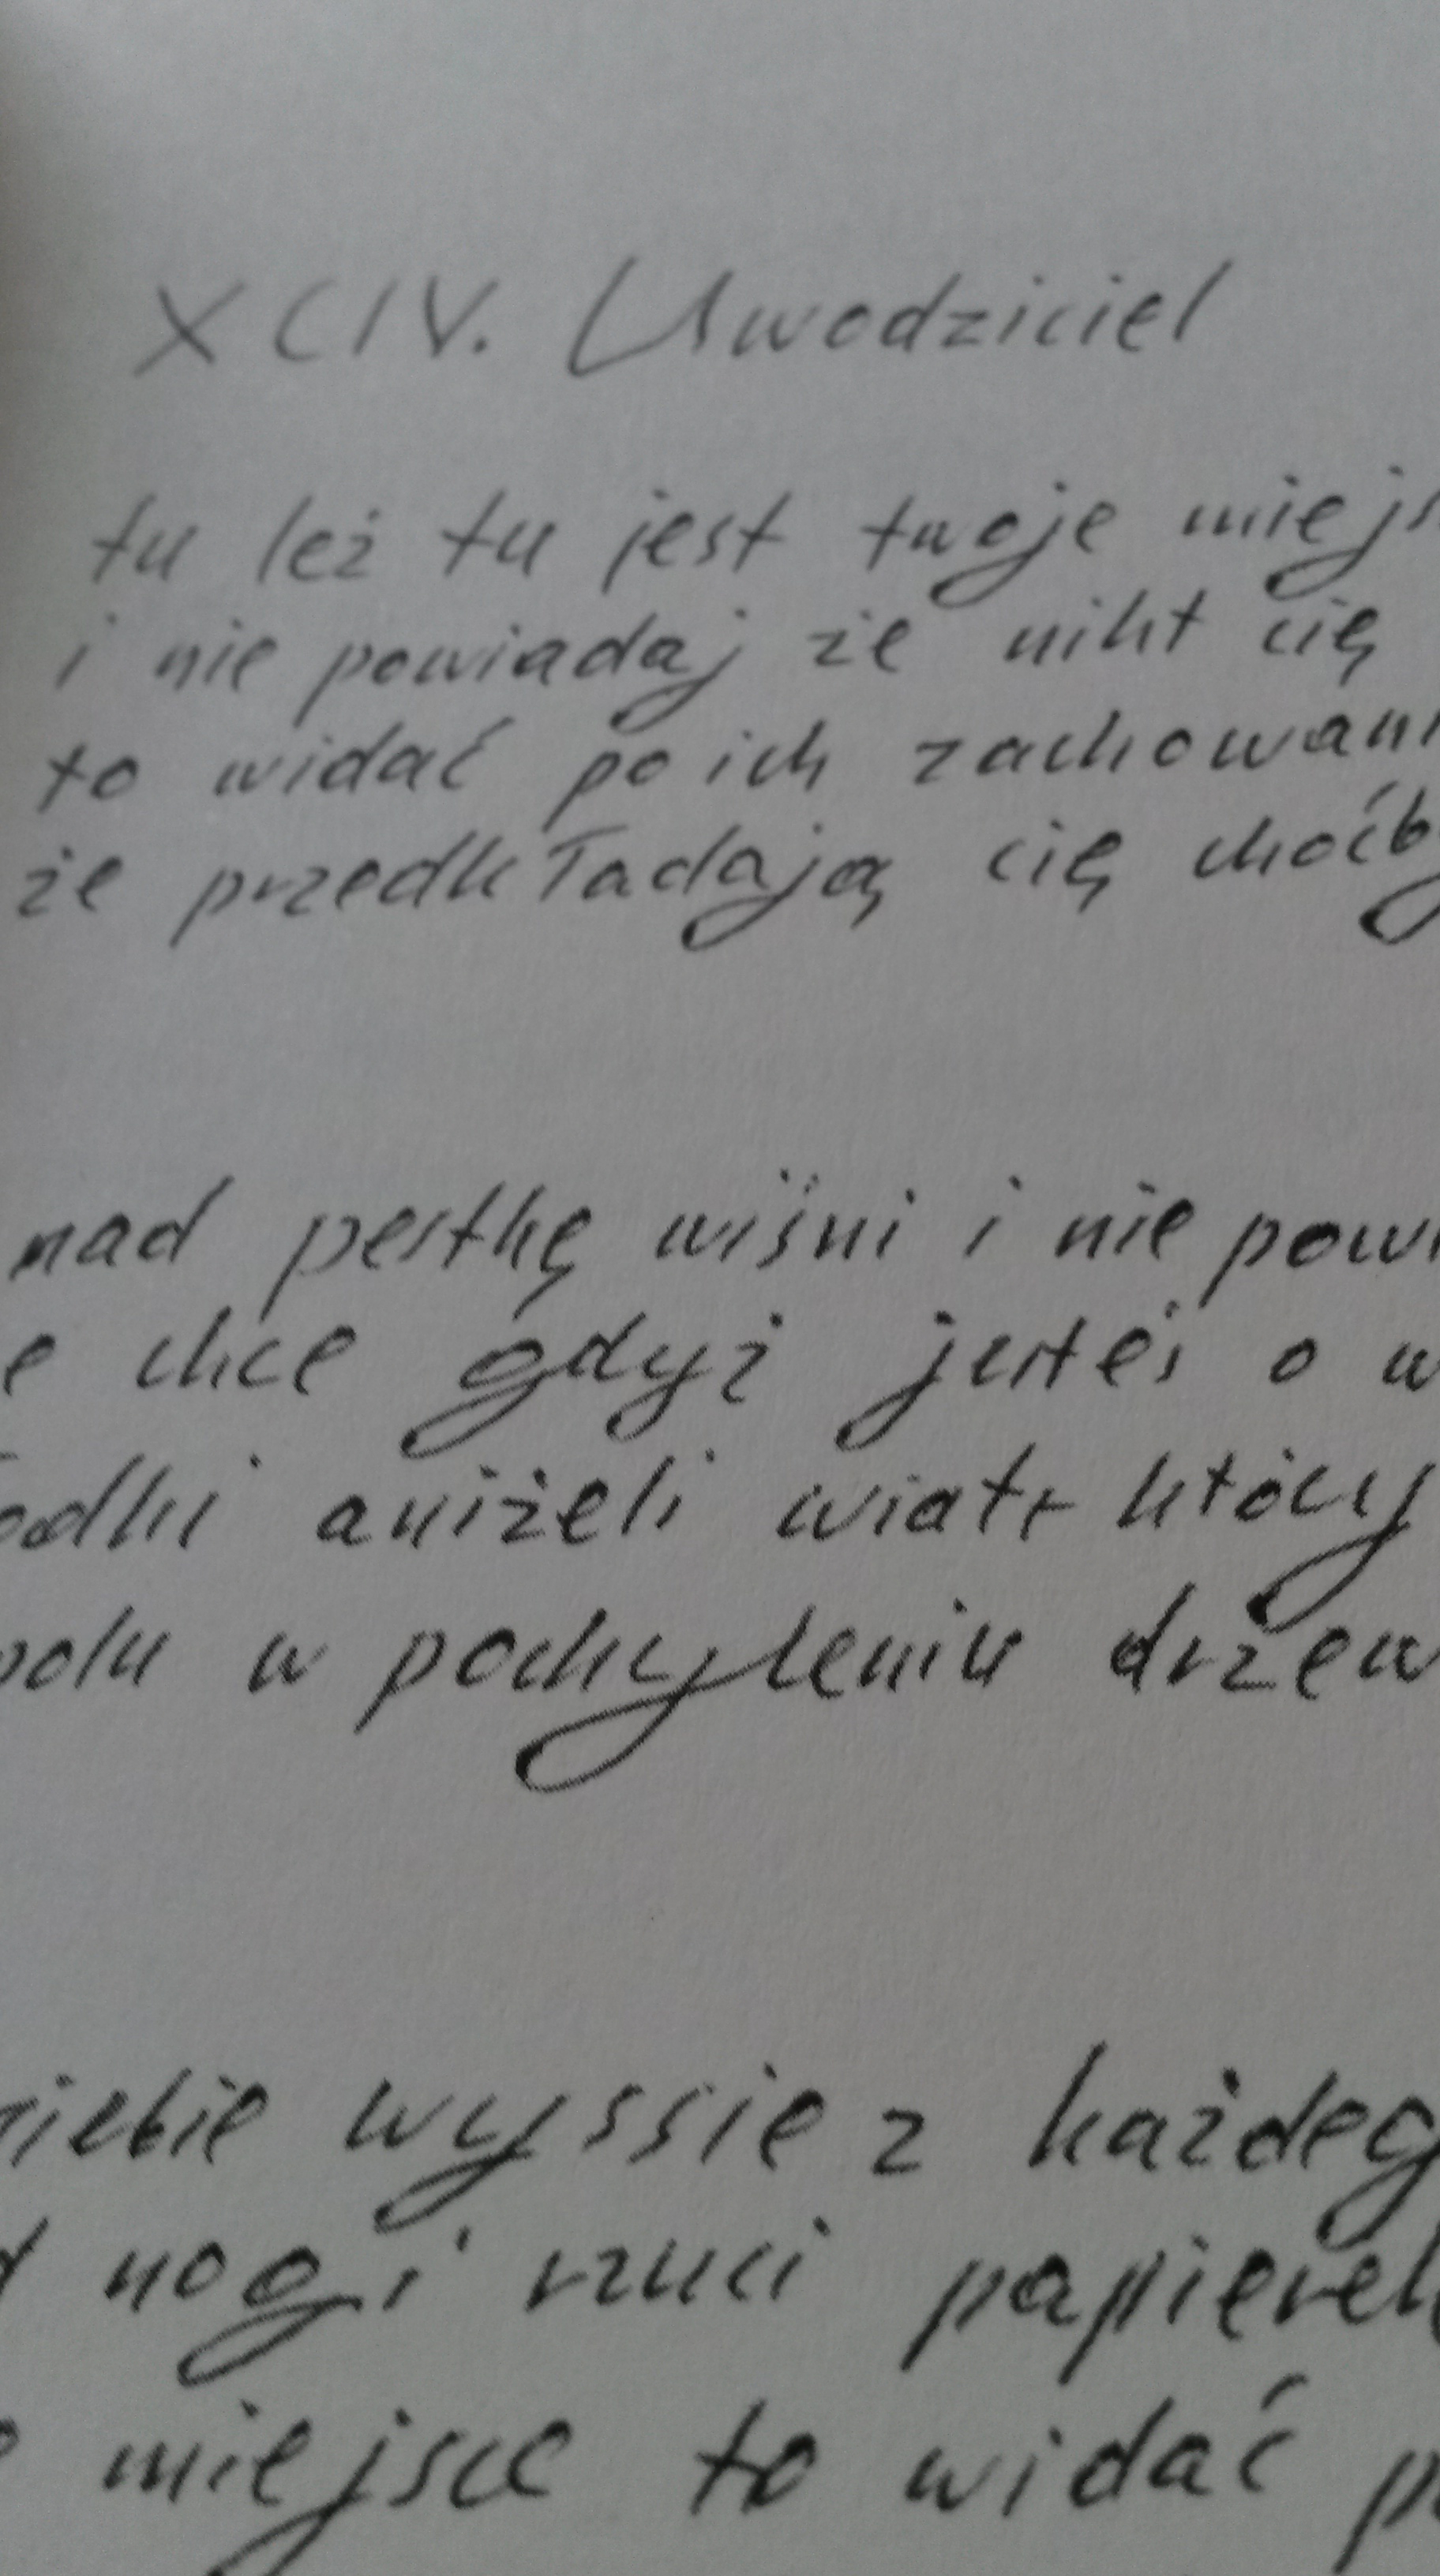 XCIV. Uwodziciel
tu leż tu jest twoje miejs
i nie powiadaj że nikt cię
to widać po ich zachowani
że przedkładają cię choćb
nad pestkę wiśni i nie powi
e chce gdyż jesteś o w
odki aniżeli wiatr który
polu w pochyleniu drzew
ciebie wyssie z każdeg
d nogi rzuci papierek
miejsce to widać p